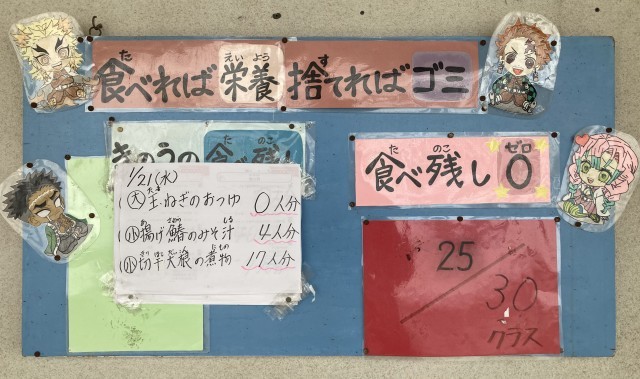 た えいよう す
食べれば栄養 捨てればゴミ
た のこ
きのうの食べ残し
1/21(水)
㊛玉ねぎのおつゆ 0人分
㊙揚げ鰆のみそ汁 4人分
切干大根の煮物 17人分
た のこ ゼロ
食べ残し0
25/30
クラス